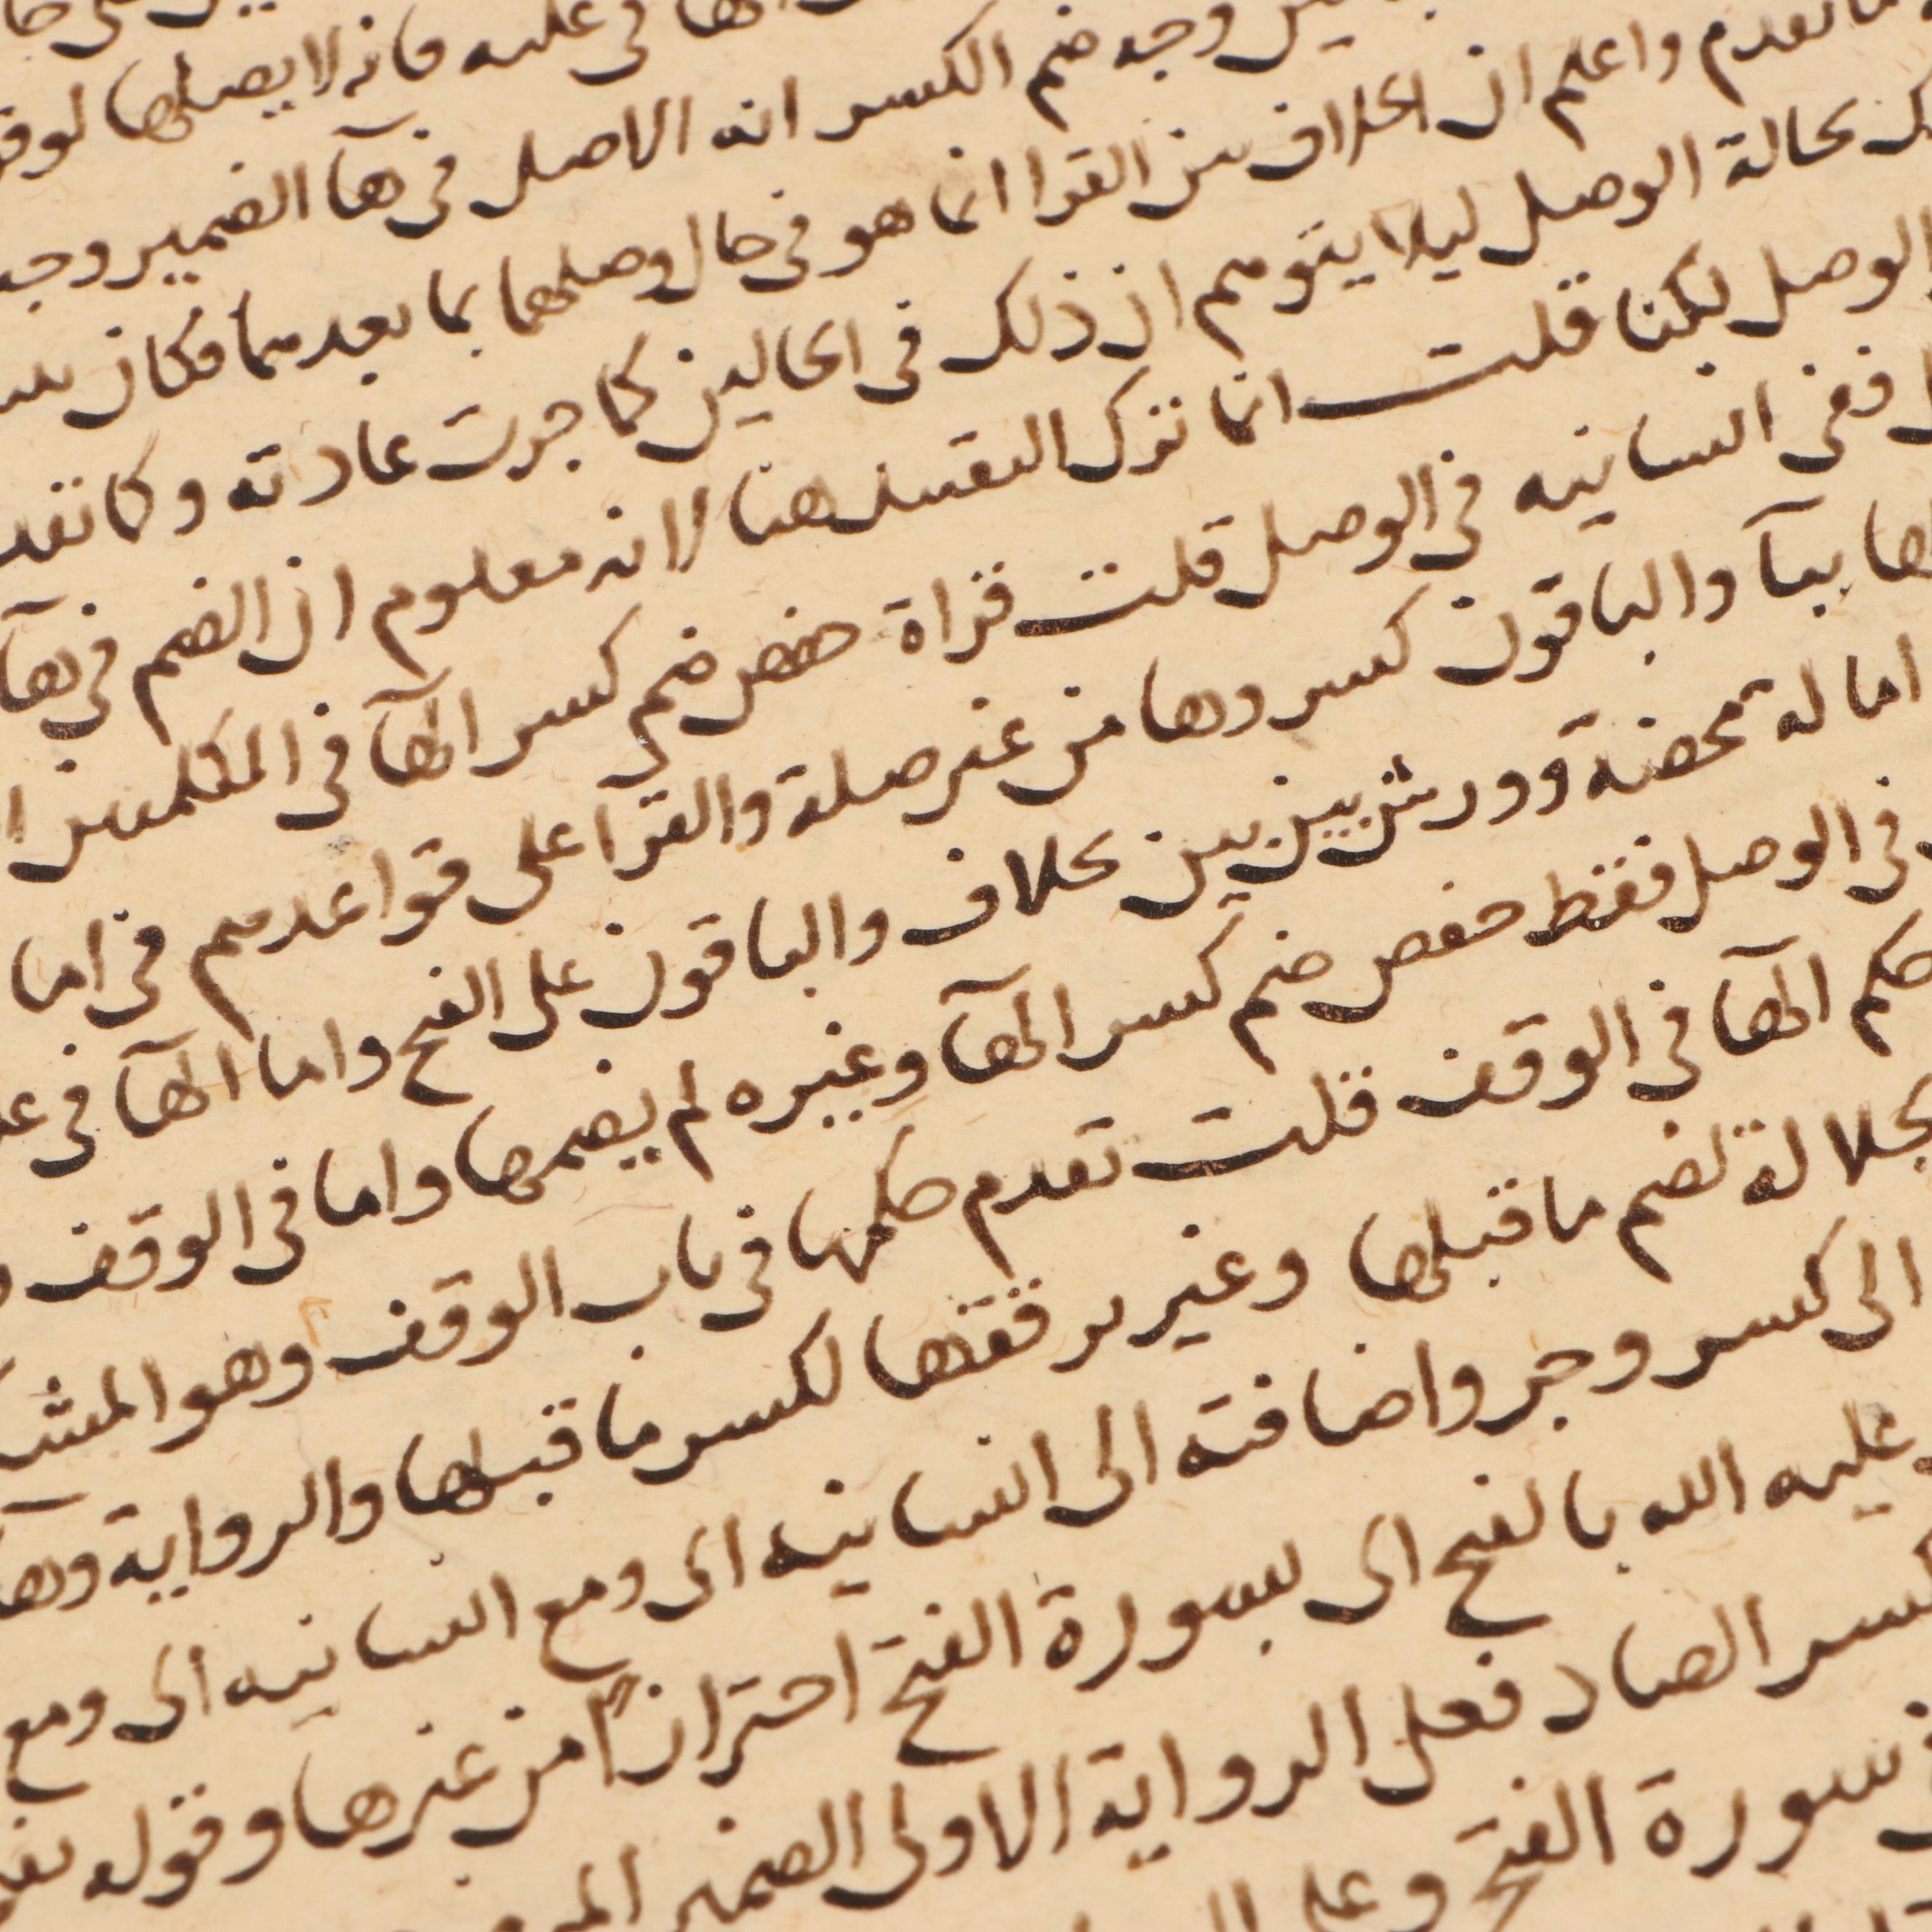 في عليه فانه لا يصلها لوقو
وجه ضم الكسر انه الاصل في هآ الضمير وجه
ما تقدم واعلم ان الخلاف بين القرا انما هو في حال وصلهما بما بعدهما فكان
بحالة الوصل ليلا يتوهم ان ذلك في الحالين كما جرت عادته وكما تقد
الوصل لكنا قلت انما نترك التقييد هنا لانه معلوم ان الضم في هآ
ففي انسانيه في الوصل قلت قراة حفص ضم كسر الهآ في الكلمتين
ها بيآ والباقون كسروها من غير صلة والقرآ على قواعدهم في اما
امالة محضة وورش بين بين بخلاف والباقون على الفتح واما الهآ في
في الوصل فقط حفص ضم كسر الهآ وغيره لم يضمها واما في الوقف
حكم الهآ في الوقف قلت تقدم حكمها في باب الوقف وهو المشـ
لجلالة لضم ما قبلها وغيره رققها لكسر ما قبلها والرواية وهآ
الى كسر وجر واضافته الى انسانيه الى ومع انسانيه الى ومع
عليه الله بالفتح الى بسورة الفتح احترازًا من غيرها وقوله
كسر الصاد فعل الرواية الاولى الضمير
سورة الفتح وعلى